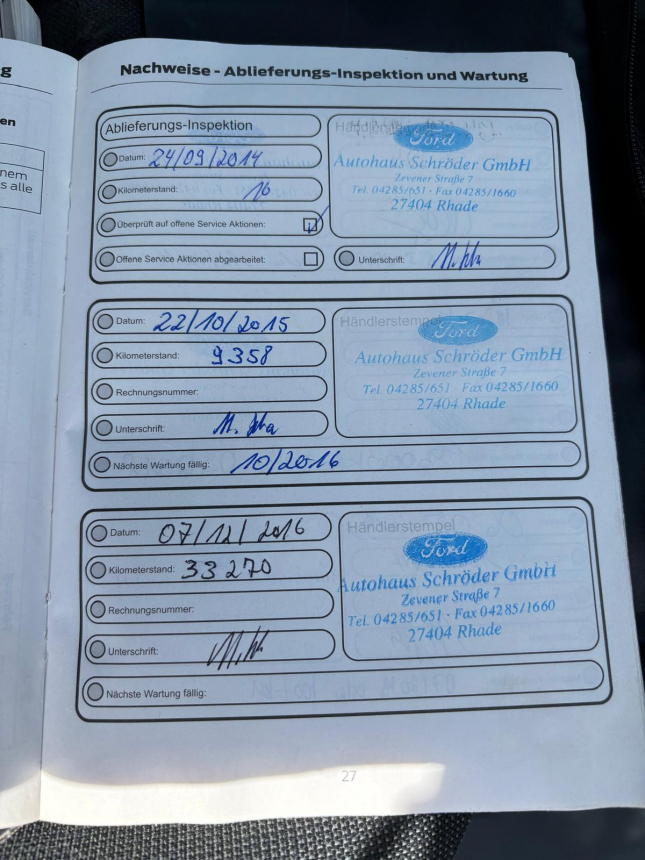 g
Nachweise - Ablieferungs-Inspektion und Wartung
en
nem
s alle
Ablieferungs-Inspektion
Datum: 24/09/2014
Kilometerstand: 16
Überprüft auf offene Service Aktionen:
Offene Service Aktionen abgearbeitet:
Händlerstempel
Ford
Autohaus Schröder GmbH
Zevener Straße 7
Tel. 04285/651 · Fax 04285/1660
27404 Rhade
Unterschrift:
Datum: 22/10/2015
Kilometerstand: 9358
Rechnungsnummer:
Unterschrift:
Nächste Wartung fällig: 10/2016
Händlerstempel
Ford
Autohaus Schröder GmbH
Zevener Straße 7
Tel. 04285/651 · Fax 04285/1660
27404 Rhade
Datum: 07/12/2016
Kilometerstand: 33270
Rechnungsnummer:
Unterschrift:
Nächste Wartung fällig:
Händlerstempel
Ford
Autohaus Schröder GmbH
Zevener Straße 7
Tel. 04285/651 · Fax 04285/1660
27404 Rhade
27